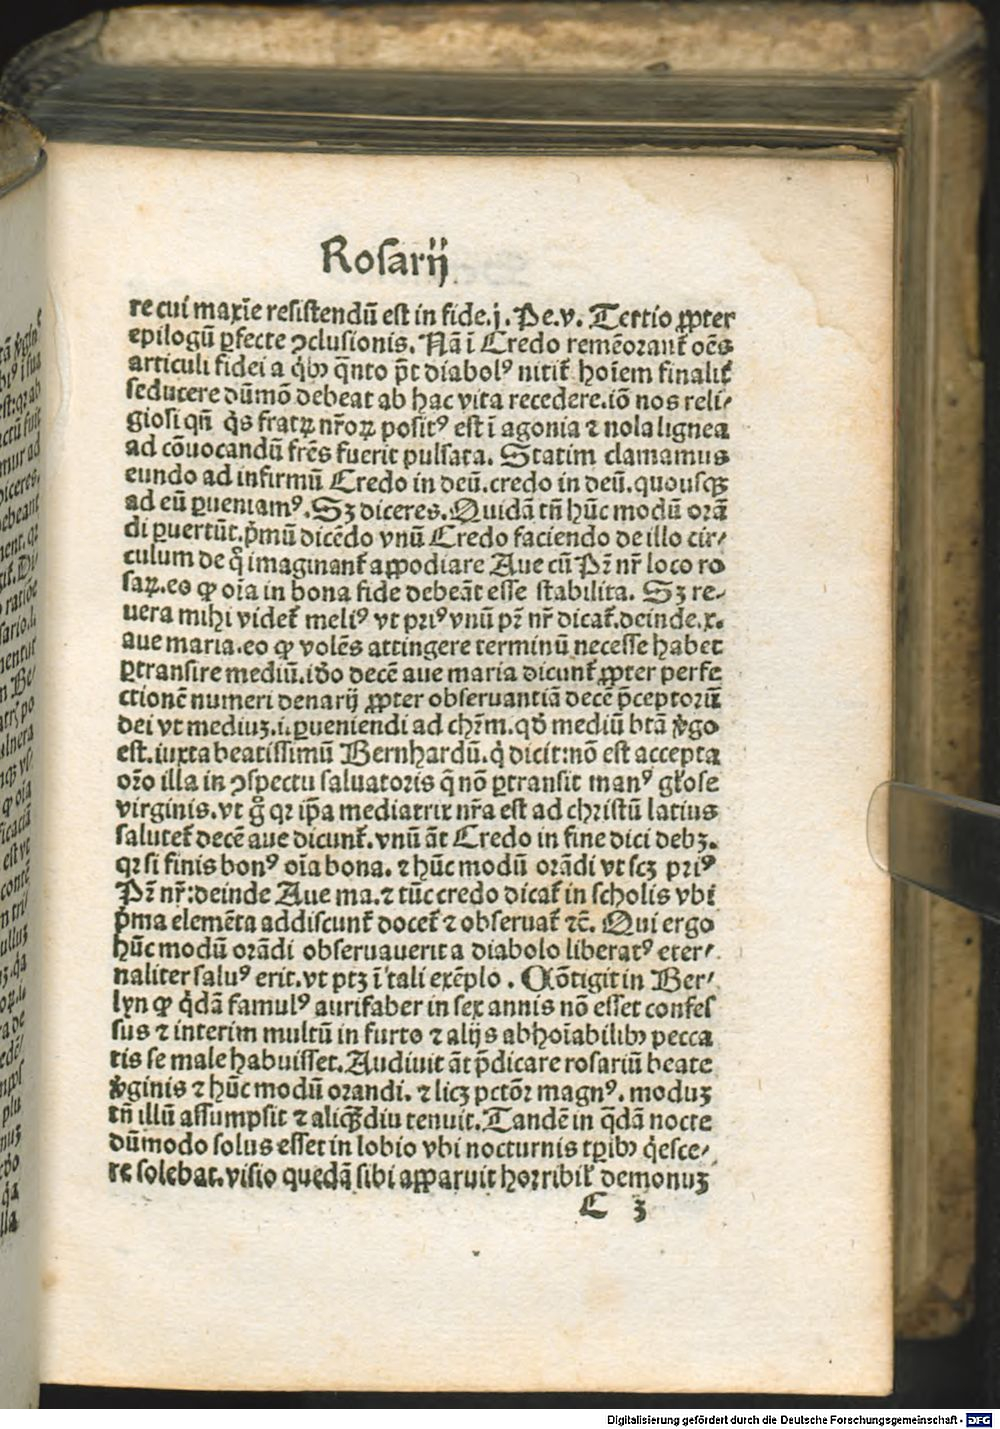 Rosarij
re cui maxīe resistendū est in fide.j. Pe.v. Tertio ꝓpter
epilogū ꝑfecte ꝯclusionis. Nā ī Credo remēorant᷑ oēs
articuli fidei a qͥbꝰ qͥnto p̄t diabolꝰ nitit᷑ hoīem finalit᷑
seducere dūmō debeat ab hac vita recedere.iō nos reli⸗
giosi qn̄ qͥs fratꝝ nr̄oꝝ positꝰ est ī agonia ⁊ nola lignea
ad cōuocandū fr̄es fuerit pulsata. Statim clamamus
eundo ad infirmū Credo in deū.credo in deū.quousqꝫ
ad eū ꝑueniamꝰ. Sꝫ diceres. Quidā tn̄ hūc modū orā
di ꝑuertūt.p̄mū dicēdo vnū Credo faciendo de illo cir⸗
culum de q̊ imaginant᷑ appodiare Aue cū Pr̄ nr̄ loco ro
saꝝ.eo ꝙ oīa in bona fide debeāt esse stabilita. Sꝫ re⸗
uera mihi videt᷑ meliꝰ vt priꝰ vnū pr̄ nr̄ dicat᷑.deinde.x.
aue maria.eo ꝙ volēs attingere terminū necesse habet
ꝑtransire mediū.iđo decē aue maria dicunt᷑ ꝓpter perfe
ctionē numeri denarij ꝓpter obseruantiā decē p̄ceptorū
dei vt mediuꝫ.i.ꝑueniendi ad chr̄m.qđ mediū btā v̓go
est.iuxta beatissimū Bernhardū.qͥ dicit:nō est accepta
orō illa in ꝯspectu saluatoris q̄ nō ꝑtransit manꝰ gl̄ose
virginis.vt g̊ qꝛ ip̄a mediatrix nr̄a est ad christū latius
salutet᷑ decē aue dicunt᷑.vnū āt Credo in fine dici debꝫ.
qꝛ si finis bonꝰ oīa bona.⁊ hūc modū orādi vt scꝫ priꝰ
Pr̄ nr̄:deinde Aue ma.⁊ tūc credo dicat᷑ in scholis vbi
p̄ma elemēta addiscunt᷑ docet᷑ ⁊ obseruat᷑ ⁊c̄. Qui ergo
hūc modū orādi obseruauerit a diabolo liberatꝰ eter⸗
naliter saluꝰ erit.vt ptꝫ ī tali exēplo. Cōtigit in Ber⸗
lyn ꝙ qͥdā famulꝰ aurifaber in sex annis nō esset confes
sus ⁊ interim multū in furto ⁊ alijs abhoīabilibꝰ pecca
tis se male habuisset. Audiuit āt p̄dicare rosariū beate
v̓ginis ⁊ hūc modū orandi.⁊ licꝫ pctōr magnꝰ.moduꝫ
tn̄ illū assumpsit ⁊ aliqꝫdiu tenuit. Tandē in qͣdā nocte
dūmodo solus esset in lobio vbi nocturnis tꝑibꝰ qͥesce⸗
re solebat.visio quedā sibi apparuit horribil᷑ demonuꝫ
C 3
Digitalisierung gefördert durch die Deutsche Forschungsgemeinschaft - DFG